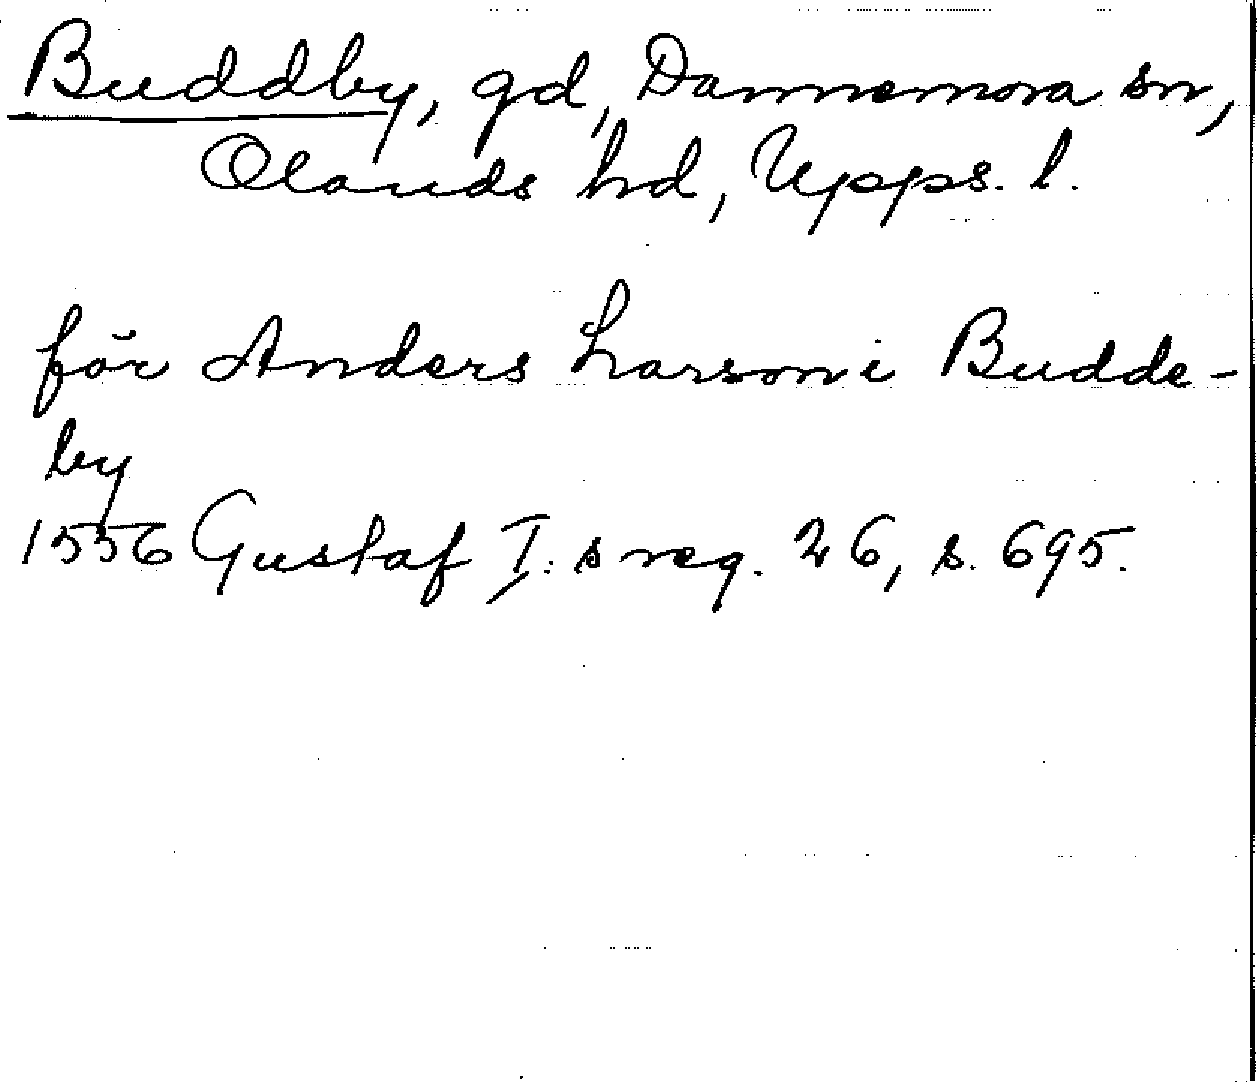 Buddby, gd, Dannemora sn,
Olands hd, Upps. l.
för Anders Larson i Budde-
by
1556 Gustaf I:s reg. 26, s. 695.